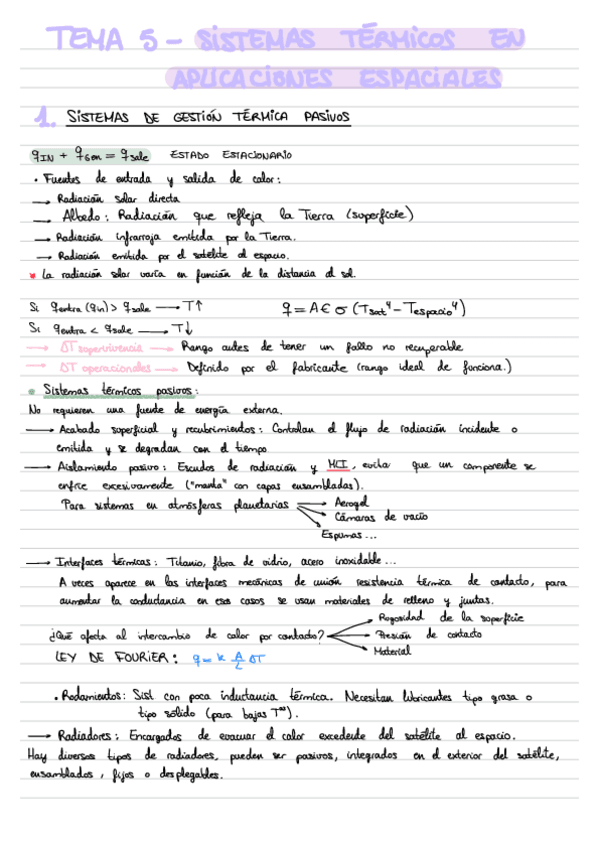 TEMA 5 - SISTEMAS TÉRMICOS EN
APLICACIONES ESPACIALES
1. SISTEMAS DE GESTIÓN TÉRMICA PASIVOS
qIN + qGen = qsale ESTADO ESTACIONARIO
• Fuentes de entrada y salida de calor:
→ Radiación solar directa
→ Albedo: Radiación que refleja la Tierra (superficie)
→ Radiación infrarroja emitida por la Tierra.
→ Radiación emitida por el satélite al espacio.
* La radiación solar varía en función de la distancia al sol.
Si qentra (qin) > qsale → T↑ q = A ε σ (Tsat⁴ - Tespacio⁴)
Si qentra < qsale → T↓
→ ΔT supervivencia → Rango antes de tener un fallo no recuperable
→ ΔT operacionales → Definido por el fabricante (rango ideal de funciona.)
• Sistemas térmicos pasivos:
No requieren una fuente de energía externa.
→ Acabado superficial y recubrimientos: Controlan el flujo de radiación incidente o
emitida y se degradan con el tiempo.
→ Aislamiento pasivo: Escudos de radiación y MCI, evita que un componente se
enfríe excesivamente ("manta" con capas ensambladas).
Para sistemas en atmósferas planetarias → Aerogel
→ Cámaras de vacío
→ Espumas...
→ Interfaces térmicas: Titanio, fibra de vidrio, acero inoxidable...
A veces aparece en las interfaces mecánicas de unión resistencia térmica de contacto, para
aumentar la conductancia en esos casos se usan materiales de relleno y juntas.
→ Rugosidad de la superficie
¿Qué afecta al intercambio de calor por contacto? → Presión de contacto
→ Material
LEY DE FOURIER: q = k A/L ΔT
• Rodamientos: Sist con poca inductancia térmica. Necesitan lubricantes tipo grasa o
tipo sólido (para bajas Tᵃˢ).
→ Radiadores: Encargados de evacuar el calor excedente del satélite al espacio.
Hay diversos tipos de radiadores, pueden ser pasivos, integrados en el exterior del satélite,
ensamblados, fijos o desplegables.